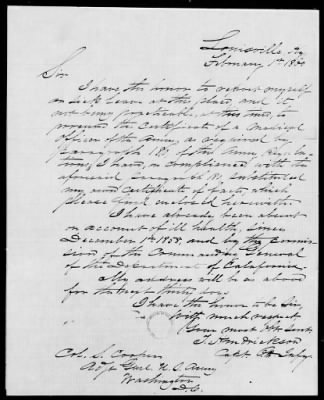 Louisville Ky
February 1st 1859
Sir
I have the honor to report myself
on sick leave at this place, and it,
not being practicable, at this time, to
procure the Certificate of a medical
Officer of the Army, as required by
Paragraph 181 of the Army Regula-
tions, I have, in compliance with the
aforesaid Paragraph
my own Certificate of facts, which
please find enclosed herewith.
I have already been absent
on account of ill health, since
December 1st 1858, and by the permis-
sion of the Commanding General
of the Department of California.
My address will be as above
for the next thirty days
I have the honor to be Sir,
With much respect
Your most Obt Servt
Hendrickson
Capt. 6th Infy.
Col. S. Cooper
Adjt Genl. U.S. Army
Washington
D.C.